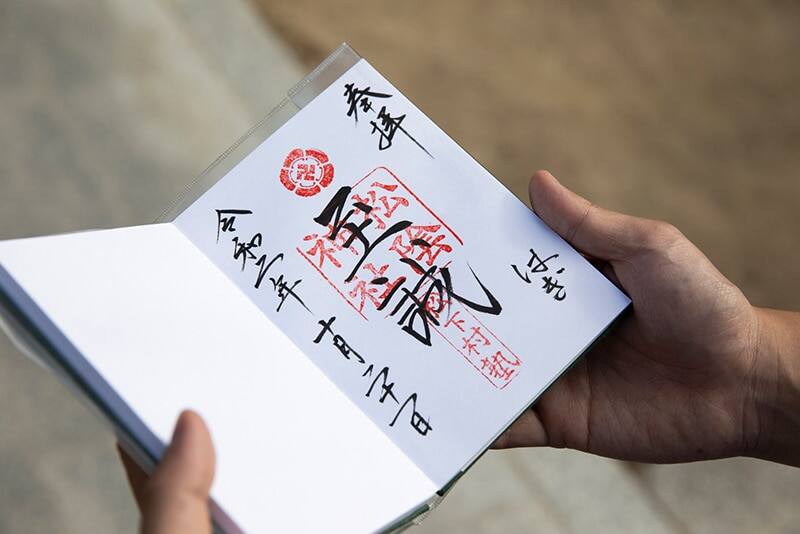 奉拝
はぎ
至誠
松陰
神社
松下村塾
令和二年
十月二十一日